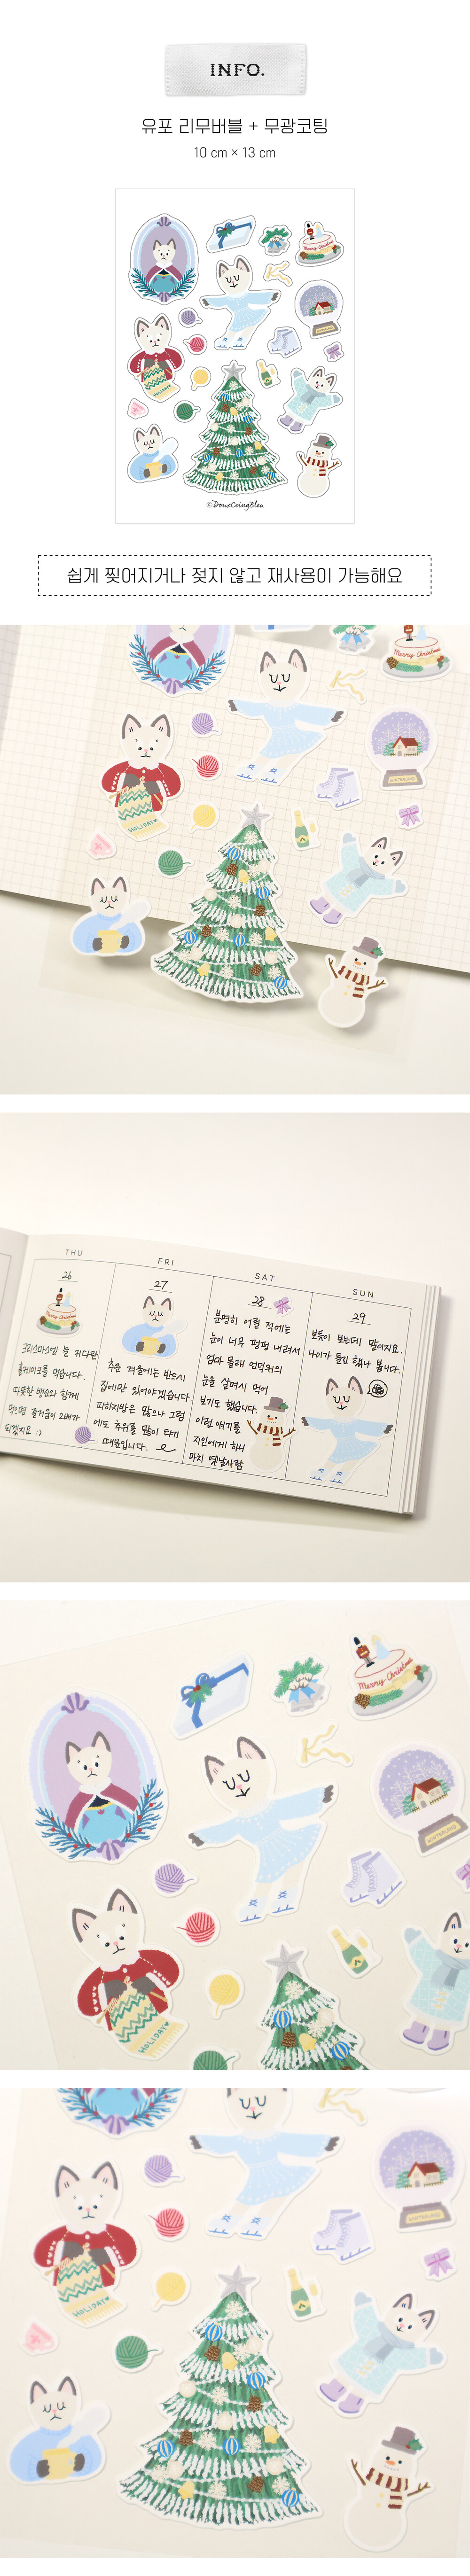 INFO.
유포 리무버블 + 무광코팅
10 cm × 13 cm
Merry Christmas
HOLIDAY
©DouxCoingBleu
쉽게 찢어지거나 젖지 않고 재사용이 가능해요
Merry Christmas
WINTERLAND
HOLIDAY
THU
FRI
SAT
SUN
26
Merry Christmas
크리스마스엔 늘 커다란
홀케이크를 먹습니다.
따뜻한 뱅쇼와 함께
먹으면 즐거움이 2배가
되겠지요 :)
27
추운 겨울에는 반드시
집에만 있어야겠습니다.
피하지방은 많으나 그럼
에도 추위를 많이 타기
때문입니다.
28
분명히 어릴 적에는
눈이 너무 펑펑 내려서
엄마 몰래 언덕위의
눈을 살며시 먹어
보기도 했습니다.
이런 얘기를
지인에게 하니
마치 옛날사람
29
보듯이 보는데 말이지요.
나이가 들긴 했나 봅니다.
Merry Christmas
WINTERLAND
HOLIDAY
WINTERLAND
HOLIDAY